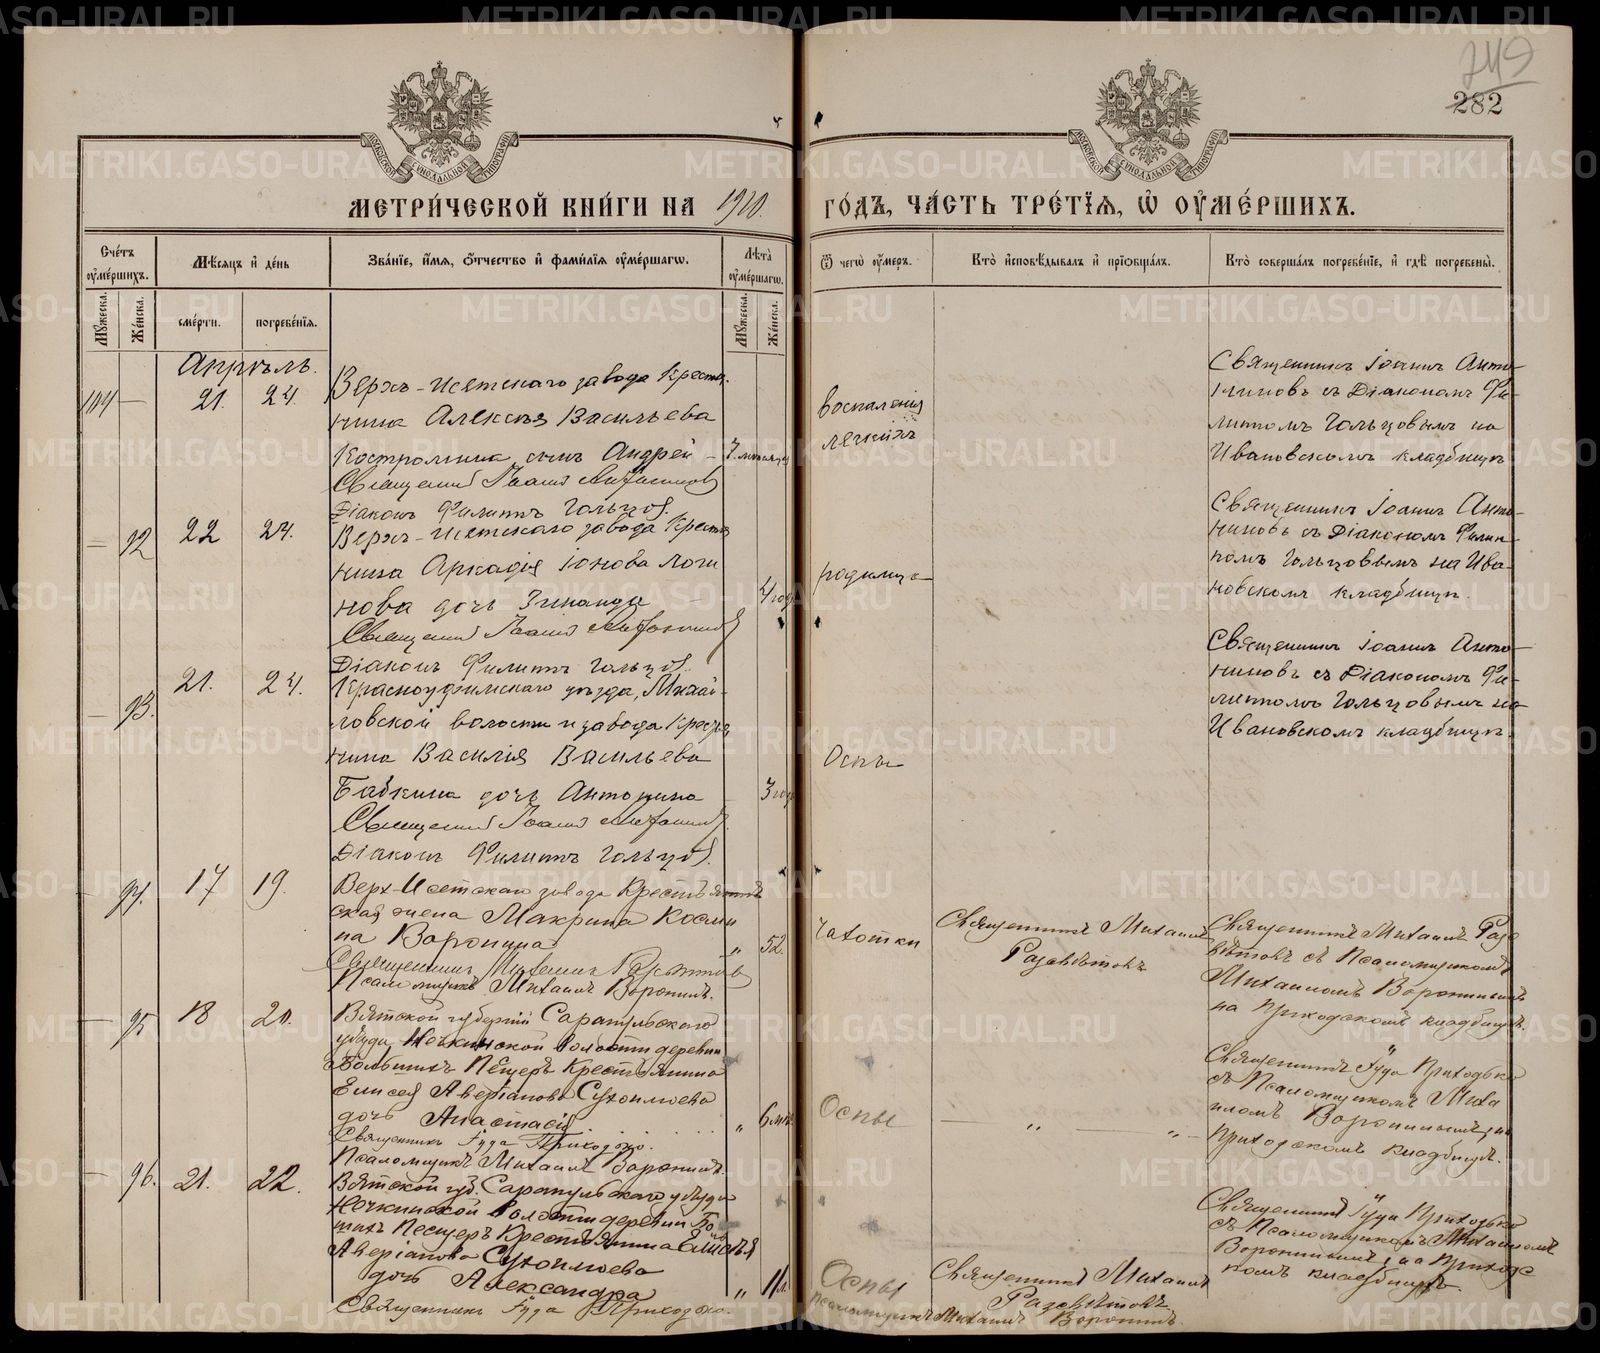 249
282
МЕТРИ́ЧЕСКОЙ КНИ́ГИ НА 1910.
ГО́ДЪ, ЧА́СТЬ ТРЕ́ТЇЯ, Ѡ ОУМЕ́РШИХЪ.
Сче́тъ оумершихъ.
Мѣсяцъ и де́нь
Зва́нїе, и́мя, ѻтчество и фами́лїя оумершагѡ.
Лѣта оумершагѡ.
Мужеска.
Же́нска.
сме́рти.
погребе́нїя.
Мужеска.
Же́нска.
Ѿ чегѡ оумеръ.
Кто̀ исповѣдывалъ и прїѡбща́лъ.
Кто̀ соверша́лъ погребе́нїе, и гдѣ погребены̀.
Апрѣль.
104 — 21. 24.
Верхъ-Исетскаго завода Крестья-
нина Алексѣя Васильева
Костромина сынъ Андрей — 7 месяцев
Священникъ Іоаннъ Антониновъ
Діаконъ Филиппъ Гольцовъ.
воспаленія
легкихъ
Священникъ Іоаннъ Анто-
ниновъ съ Діакономъ Фи-
липпомъ Гольцовымъ на
Ивановскомъ кладбищѣ
— 92 22 24.
Верхъ-Исетскаго завода Крестья
нина Аркадія Іонова Логи
нова дочь Зинаида 4 года
Священникъ Іоаннъ Антониновъ
Діаконъ Филиппъ Гольцовъ.
родимца
Священникъ Іоаннъ Анто-
ниновъ съ Діакономъ Филип-
помъ Гольцовымъ на Ива-
новскомъ кладбищѣ.
— 93. 21. 24.
Красноуфимскаго уѣзда, Михай-
ловской волости и завода Крестья
нина Василія Васильева
Бабкина дочь Антонина 3 года
Священникъ Іоаннъ Антониновъ
Діаконъ Филиппъ Гольцовъ.
Оспы
Священникъ Іоаннъ Анто-
ниновъ съ Діакономъ Фи-
липпомъ Гольцовымъ на
Ивановскомъ кладбищѣ.
— 94. 17 19.
Верх-Исетскаго завода Крестьян
ская жена Макрина Косми
на Воронина „ 52.
Священникъ Михаилъ Разсвѣтовъ
Псаломщикъ Михаилъ Воронинъ.
чахотки
Священникъ Михаилъ
Разсвѣтовъ
Священникъ Михаилъ Разс
вѣтовъ съ Псаломщикомъ
Михаиломъ Воронинымъ
на Приходскомъ кладбищѣ.
— 95 18 20.
Вятской губерніи Сарапульскаго
уѣзда, Нечкинской волости деревни
Большихъ Пещеръ Крестьянина
Елисея Аверіанова Сухоплюева
дочь Анастасія „ 6 мѣс.
Священникъ Іуда Приходько.
Псаломщикъ Михаилъ Воронинъ.
Оспы — „ — „ —
Священникъ Іуда Приходько
съ Псаломщикомъ Миха
иломъ Воронинымъ, на
Приходскомъ кладбищѣ.
— 96. 21. 22.
Вятской губ. Сарапульскаго уѣзда
Нечкинской волости деревни Бо
шихъ Пещеръ Крестьянина Елисея
Аверіанова Сухоплюева
дочь Александра „ 11 л.
Священникъ Іуда Приходько.
Оспы
Священникъ Михаилъ
Разсвѣтовъ
Псаломщикъ Михаилъ Воронинъ.
Священникъ Іуда Приходько
съ Псаломщикомъ Михаиломъ
Воронинымъ, на Приходс
комъ кладбищѣ.
METRIKI.GASO-URAL.RU